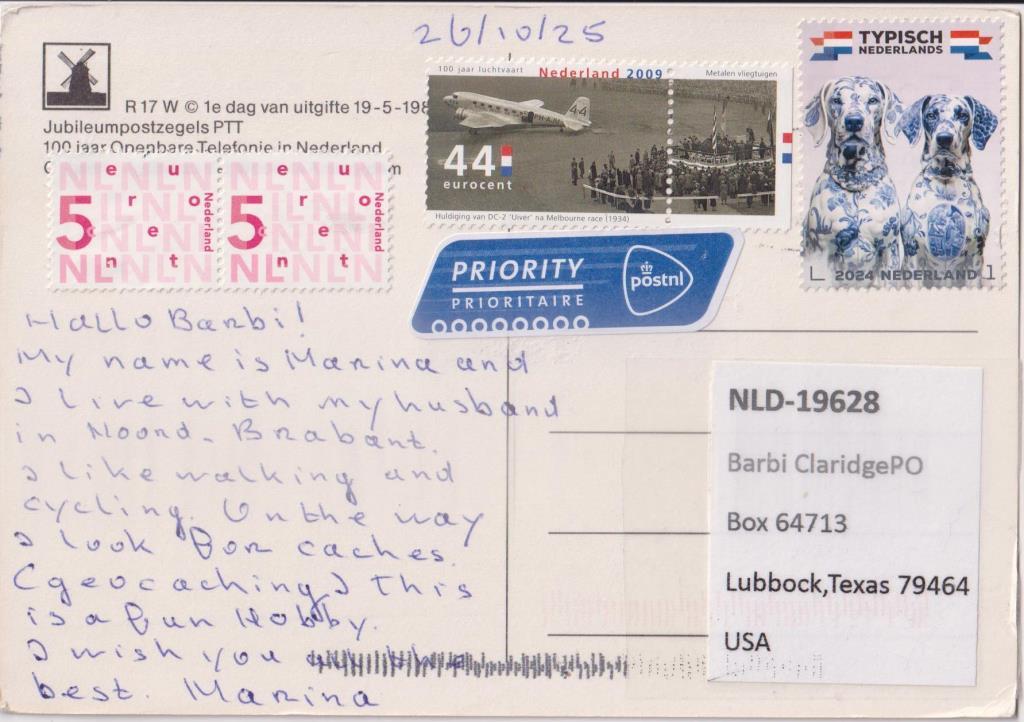 26/10/25
R 17 W © 1e dag van uitgifte 19-5-198
Jubileumpostzegels PTT
100 jaar Openbare Telefonie in Nederland
100 jaar luchtvaart Nederland 2009 Metalen vliegtuigen
PH-AJU 44
44
eurocent
Huldiging van DC-2 'Uiver' na Melbourne race (1934)
TYPISCH
NEDERLANDS
2024 NEDERLAND 1
5 euro cent Nederland NL
5 euro cent Nederland NL
PRIORITY
PRIORITAIRE
postnl
Hallo Barbi!
My name is Marina and
I live with my husband
in Noord-Brabant.
I like walking and
cycling. On the way
I look for caches.
(geocaching) This
is a fun Hobby.
I wish you all the
best. Marina
NLD-19628
Barbi ClaridgePO
Box 64713
Lubbock,Texas 79464
USA